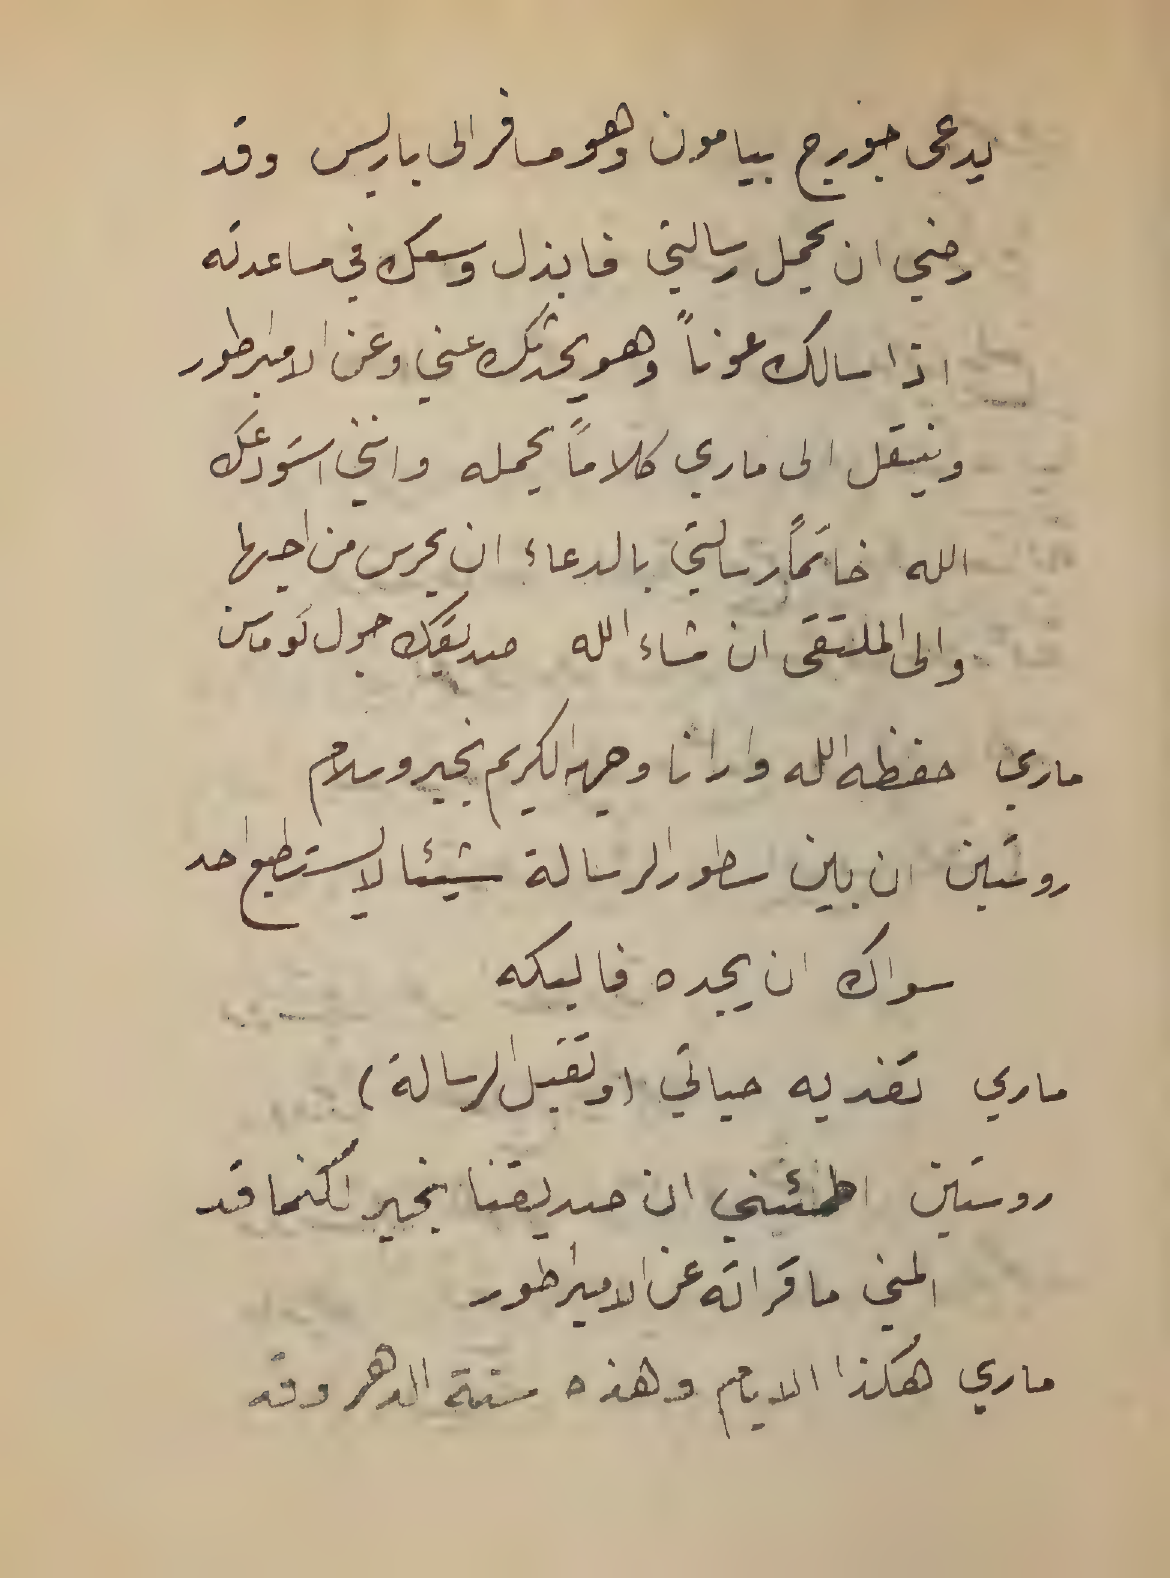 يدعى جورج بيامون وهو مسافر الى باريس وقد
رضي ان يحمل رسالتي فابذل وسعك في مساعدته
اذا سالك عوناً وهو يحدثك عني وعن الامبراطور
وينقل الى ماري كلاماً يحمله وانني استودعك
الله خاتماً رسالتي بالدعاء ان يحرس من احبها
والى الملتقى ان شاء الله صديقك جول توماس
ماري حفظه الله وارانا وجهه الكريم بخير وسلام
روستين ان بين سطور الرسالة شيئا لا يستطيع احد
سواك ان يجده فاليكه
ماري تفديه حياتي (وتقبل الرسالة)
روستين اطمئني ان صديقنا بخير لكنما قد
المني ما قراته عن الامبراطور
ماري هكذا الايام وهذه سنة الدهر وقد